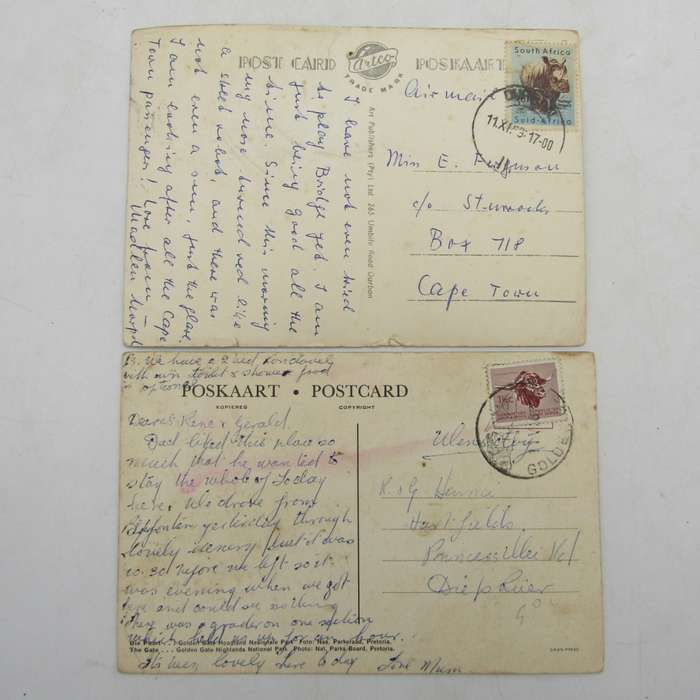 POST CARD
Artco
TRADE MARK
POSKAART
South Africa
Suid-Afrika
11.XI.59-17-00
Air mail
I have not even tried
to play Bridge yet. I am
just being good all the
time. Since this morning
my nose turned red like
a street robot, and there was
not even a sun, just the glare.
I am looking after all the Cape
Town passengers! Love from –
Art Publishers (Pty) Ltd. 265 Umbilo Road Durban
Miss E. Ferguson
c/o Sturrocks
Box 718
Cape Town
We have a 2 bed rondavel
with own toilet & shower food
optional
POSKAART • POSTCARD
KOPIEREG
COPYRIGHT
GOLDEN
Dearest Rene & Gerald.
Dad liked this place so
much that he wanted to
stay the whole of Today
here. We drove from
yesterday through
lovely scenery but it was
before we left so it
was evening when we got
here and could see nothing
There was a grader on one section
which held us up for an hour.
Its been lovely here today
Love Mum
R & G
Hartfields
Princess Vlei Rd
Diep River
Die Poort . . . Golden Gate Hoogland Nasionale Park Foto: Nas. Parkeraad, Pretoria.
The Gate . . . Golden Gate Highlands National Park Photo: Nat. Parks Board, Pretoria.